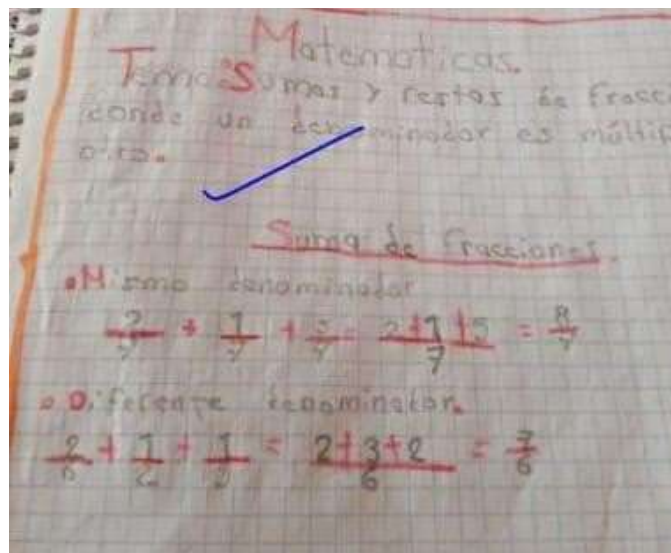 Matematicas.
Tema: Sumas y restas de fracc
donde un denominador es múltip
otro.
Suma de fracciones.
• Mismo denominador
2/7 + 1/7 + 5/7 = 2+1+5/7 = 8/7
• Diferente denominador.
2/6 + 1/2 + 1/3 = 2+3+2/6 = 7/6